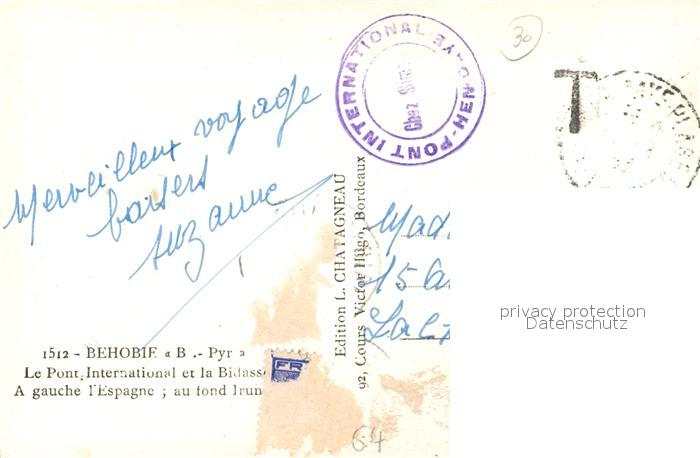 Merveilleux voyage
baisers
Suzanne
1512 - BEHOBIE « B .- Pyr »
Le Pont International et la Bidass
A gauche l'Espagne ; au fond Irun
FR
Edition L. CHATAGNEAU
92, Cours Victor Hugo, Bordeaux
PONT INTERNATIONAL
Chez
30
T
Mad
15
64
privacy protection
Datenschutz